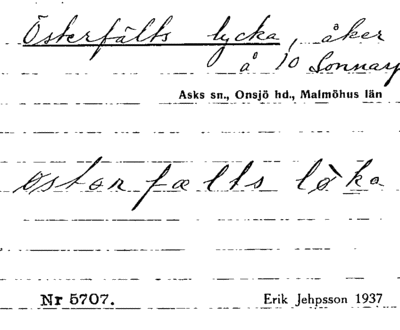 Österfälts lycka, åker
å 10 Sonnarp
Asks sn., Onsjö hd., Malmöhus län
östarfælts løka
Nr 5707.
Erik Jehpsson 1937